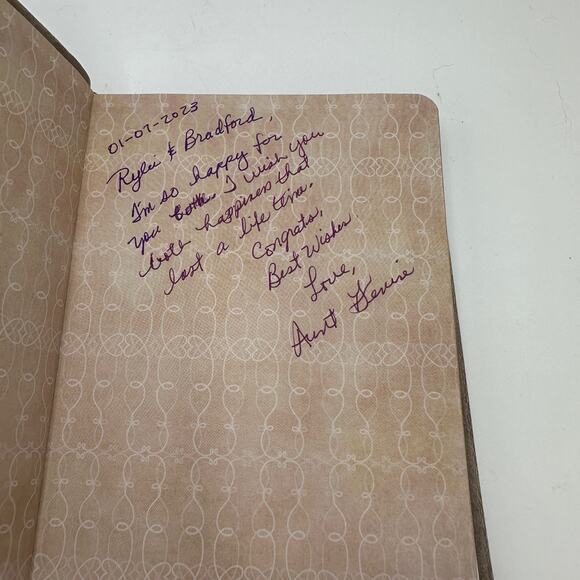 01-07-2023
Rylei & Bradford,
I'm so happy for
you both. I wish you
both happiness that
last a life time.
Congrats,
Best Wishes
Love,
Aunt Denise